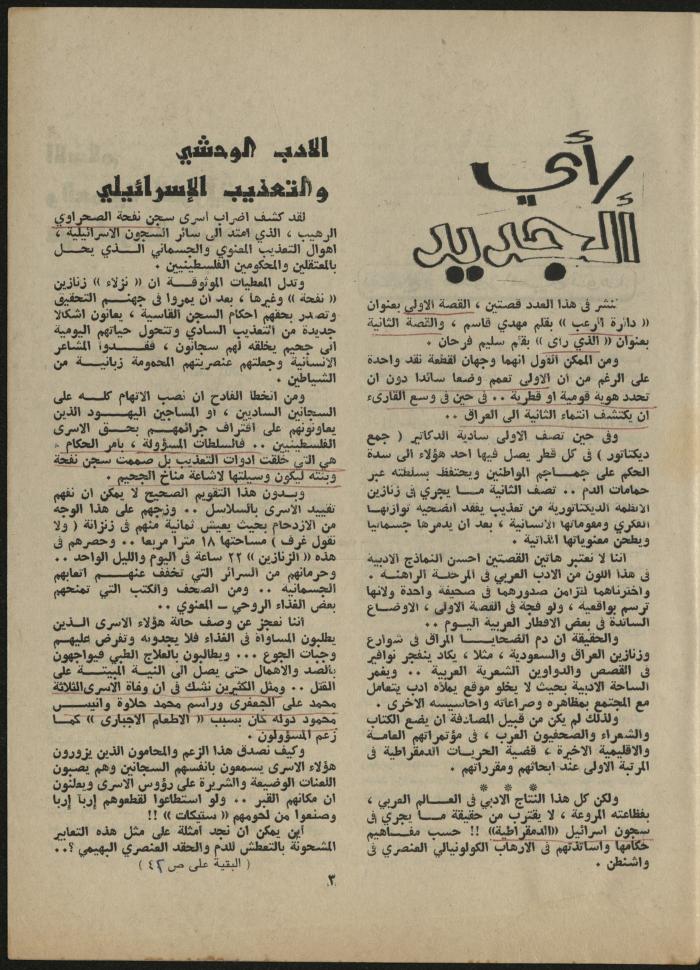 رأي
الجديد
ننشر في هذا العدد قصتين ، القصة الاولى بعنوان
« دائرة الرعب » بقلم مهدي قاسم ، والقصة الثانية
بعنوان « الذي رأى » بقلم سليم فرحان .
ومن الممكن القول انهما وجهان لقطعة نقد واحدة
على الرغم من ان الاولى تعمم وضعا سائدا دون ان
تحدد هوية قومية او قطرية .. في حين في وسع القارىء
ان يكتشف انتماء الثانية الى العراق ..
وفي حين تصف الاولى سادية الدكاتير ( جمع
ديكتاتور ) في كل قطر يصل فيها احد هؤلاء الى سدة
الحكم على جماجم المواطنين ويحتفظ بسلطته عبر
حمامات الدم .. تصف الثانية مـا يجري في زنازين
الانظمة الديكتاتورية من تعذيب يفقد الضحية توازنها
الفكري ومقوماتها الانسانية ، بعد ان يدمرها جسمانيا
ويطحن معنوياتها الذاتية .
اننا لا نعتبر هاتين القصتين احسن النماذج الادبية
في هذا اللون من الادب العربي في المرحلة الراهنة .
واخترناهما لتزامن صدورهما في صحيفة واحدة ولانها
ترسم بواقعية ، ولو فجة في القصة الاولى ، الاوضاع
السائدة في بعض الاقطار العربية اليوم ..
والحقيقة ان دم الضحايـا المراق في شوارع
وزنازين العراق والسعودية ، مثلا ، يكاد ينفجر نوافير
في القصص والدواوين الشعرية العربية .. ويغمر
الساحة الادبية بحيث لا يخلو موقع يملأه ادب يتعامل
مع المجتمع بمظاهره وصراعاته واحاسيسه الاخرى .
ولذلك لم يكن من قبيل المصادفة ان يضع الكتاب
والشعراء والصحفيون العرب ، في مؤتمراتهم العامـة
والاقليمية الاخيرة ، قضية الحريات الدمقراطية في
المرتبة الاولى عند ابحاثهم ومقرراتهم .
* * *
ولكن كل هذا النتاج الادبي في العـالم العربي ،
بفظاعته المروعة ، لا يقترب من حقيقة مـا يجري في
سجون اسرائيل «الدمقراطية» !! حسب مفـاهيم
حكامها واساتذتهم في الارهاب الكولونيالي العنصري في
واشنطن .
الادب الوحشي
والتعذيب الإسرائيلي
لقد كشف اضراب اسرى سجن نفحة الصحراوي
الرهيب ، الذي امتد الى سائر السجون الاسرائيلية ،
اهوال التعذيب المعنوي والجسماني الـذي يحـل
بالمعتقلين والمحكومين الفلسطينيين .
وتدل المعطيات الموثوقـة ان « نزلاء » زنازين
« نفحة » وغيرها ، بعد ان يمروا في جهنـم التحقيق
وتصدر بحقهم احكام السجن القاسية ، يعانون اشكالا
جديدة من التعذيب السادي وتتحول حياتهم اليومية
الى جحيم يخلقه لهم سجانون ، فقــدوا المشاعر
الانسانية وجعلتهم عنصريتهم المحمومة زبانيـة من
الشياطين .
ومن الخطأ الفادح ان نصب الاتهام كلـه على
السجانين الساديين ، او المساجين اليهـود الذين
يعاونونهم على اقتراف جرائمهـم بحـق الاسرى
الفلسطينيين .. فالسلطات المسؤولة ، بأمر الحكام ،
هي التي خلقت ادوات التعذيب بل صممت سجن نفحة
وبنته ليكون وسيلتها لاشاعة مناخ الجحيم .
وبـدون هذا التقويم الصحيح لا يمكن ان نفهم
تقييد الاسرى بالسلاسل .. وزجهم على هذا الوجه
من الازدحام بحيث يعيش ثمانية منهم في زنزانة ( ولا
نقول غرف ) مساحتها ١٨ مترا مربعا .. وحصرهم في
هذه « الزنازين » ٢٢ ساعة في اليوم والليل الواحد ..
وحرمانهم من السرائر التي تخفف عنهــم اتعابهم
الجسمانيه .. ومن الصحف والكتب التي تمنحهم
بعض الغذاء الروحي ـ المعنوي ..
اننا نعجز عن وصف حالة هؤلاء الاسرى الـذين
يطلبون المساواة في الغذاء فلا يجدونه وتفرض عليهـم
وجبات الجوع ... ويطالبون بالعلاج الطبي فيواجهون
بالصد والاهمال حتى يصل الى النية المبيتـة على
القتل .. ومثل الكثيرين نشك في ان وفاة الاسرى الثلاثة
محمد علي الجعفري وراسم محمد حلاوة وانيـس
محمود دوله كان بسبب « الاطعام الاجباري » كمـا
زعم المسؤولون .
وكيف نصدق هذا الزعم والمحامون الذين يزورون
هؤلاء الاسرى يسمعون بانفسهم السجانين وهم يصبون
اللعنات الوضيعة والشريرة على رؤوس الاسرى ويعلنون
ان مكانهم القبر .. ولو استطاعوا لقطعوهم إربا إربا
وصنعوا من لحومهم « ستيكات » !!
أين يمكن ان نجد امثلة على مثل هذه التعابير
المشحونة بالتعطش للدم والحقد العنصري البهيمي ؟..
( البقية على ص ٤٢ )
٣